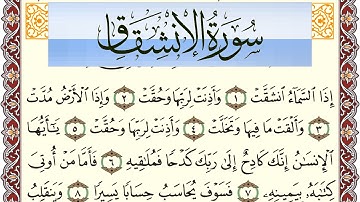 سُورَةُ الانشِقَاقِ
إِذَا ٱلسَّمَآءُ ٱنشَقَّتْ ١ وَأَذِنَتْ لِرَبِّهَا وَحُقَّتْ ٢ وَإِذَا ٱلْأَرْضُ مُدَّتْ
٣ وَأَلْقَتْ مَا فِيهَا وَتَخَلَّتْ ٤ وَأَذِنَتْ لِرَبِّهَا وَحُقَّتْ ٥ يَٰٓأَيُّهَا
ٱلْإِنسَٰنُ إِنَّكَ كَادِحٌ إِلَىٰ رَبِّكَ كَدْحًا فَمُلَٰقِيهِ ٦ فَأَمَّا مَنْ أُوتِىَ
كِتَٰبَهُۥ بِيَمِينِهِۦ ٧ فَسَوْفَ يُحَاسَبُ حِسَابًا يَسِيرًا ٨ وَيَنقَلِبُ